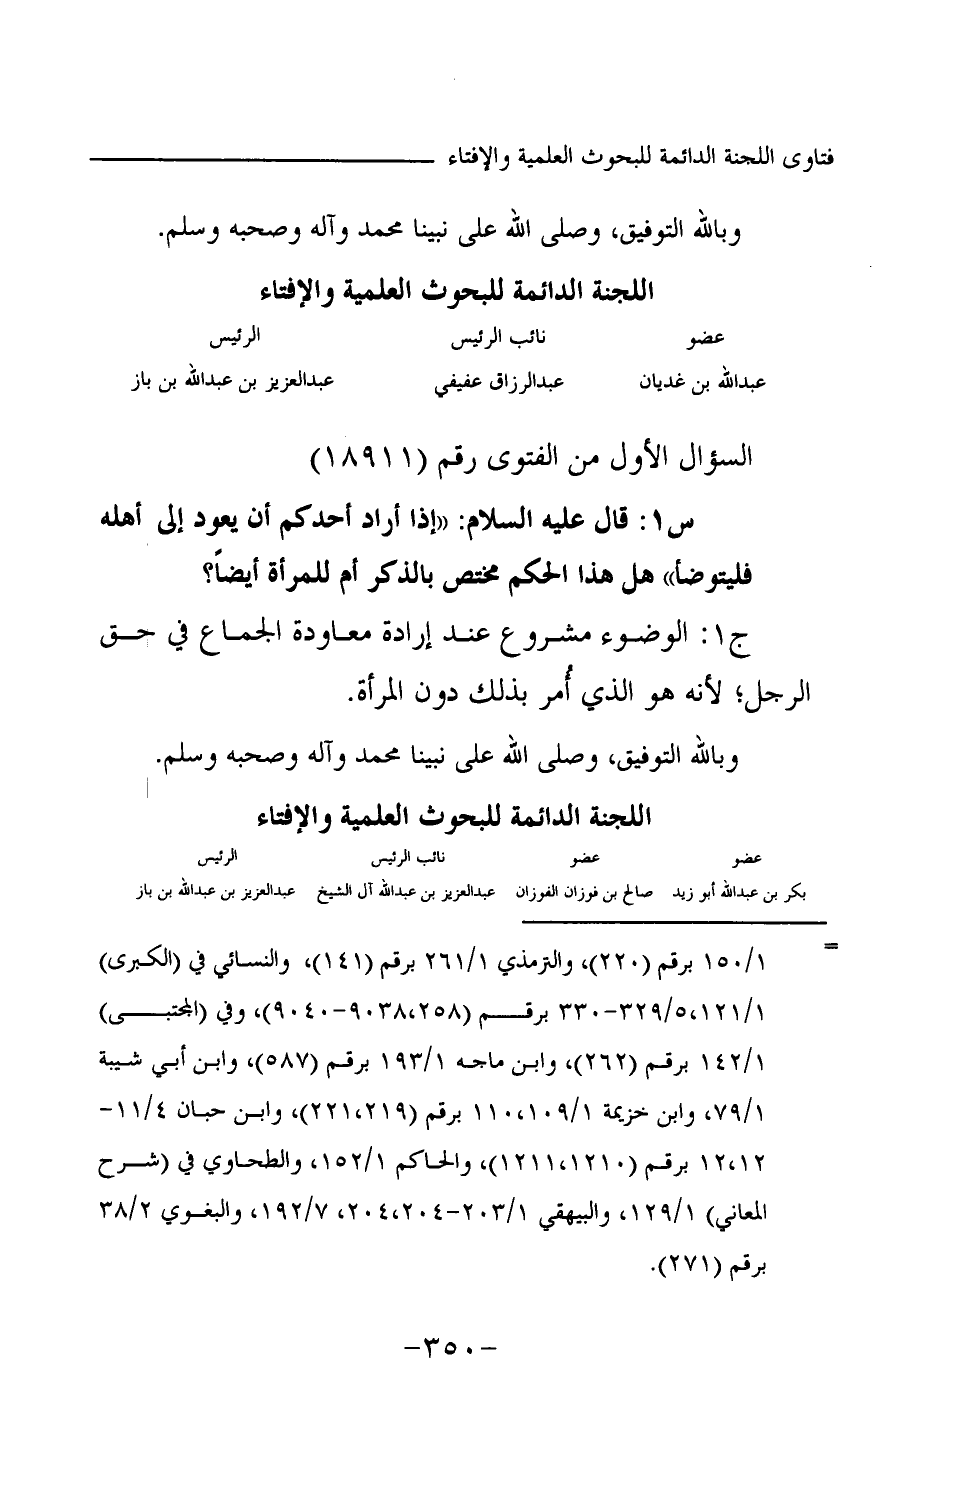 فتاوى اللجنة الدائمة للبحوث العلمية والإفتاء
وبالله التوفيق، وصلى الله على نبينا محمد وآله وصحبه وسلم.
اللجنة الدائمة للبحوث العلمية والإفتاء
عضو نائب الرئيس الرئيس
عبدالله بن غديان عبدالرزاق عفيفي عبدالعزيز بن عبدالله بن باز
السؤال الأول من الفتوى رقم (١٨٩١١)
س١: قال عليه السلام: «إذا أراد أحدكم أن يعود إلى أهله
فليتوضأ» هل هذا الحكم مختص بالذكر أم للمرأة أيضاً؟
ج١: الوضوء مشروع عند إرادة معاودة الجماع في حق
الرجل؛ لأنه هو الذي أُمر بذلك دون المرأة.
وبالله التوفيق، وصلى الله على نبينا محمد وآله وصحبه وسلم.
اللجنة الدائمة للبحوث العلمية والإفتاء
عضو عضو نائب الرئيس الرئيس
بكر بن عبدالله أبو زيد صالح بن فوزان الفوزان عبدالعزيز بن عبدالله آل الشيخ عبدالعزيز بن عبدالله بن باز
= ١/١٥٠ برقم (٢٢٠)، والترمذي ١/٢٦١ برقم (١٤١)، والنسائي في (الكبرى)
١/١٢١، ٥/٣٢٩-٣٣٠ برقم (٢٥٨، ٩٠٣٨-٩٠٤٠)، وفي (المجتبى)
١/١٤٢ برقم (٢٦٢)، وابن ماجه ١/١٩٣ برقم (٥٨٧)، وابن أبي شيبة
١/٧٩، وابن خزيمة ١/١٠٩، ١١٠ برقم (٢١٩، ٢٢١)، وابن حبان ٤/١١-
١٢، ١٢ برقم (١٢١٠، ١٢١١)، والحاكم ١/١٥٢، والطحاوي في (شرح
المعاني) ١/١٢٩، والبيهقي ١/٢٠٣-٢٠٤، ٢٠٤، ٧/١٩٢، والبغوي ٢/٣٨
برقم (٢٧١).
-٣٥٠-